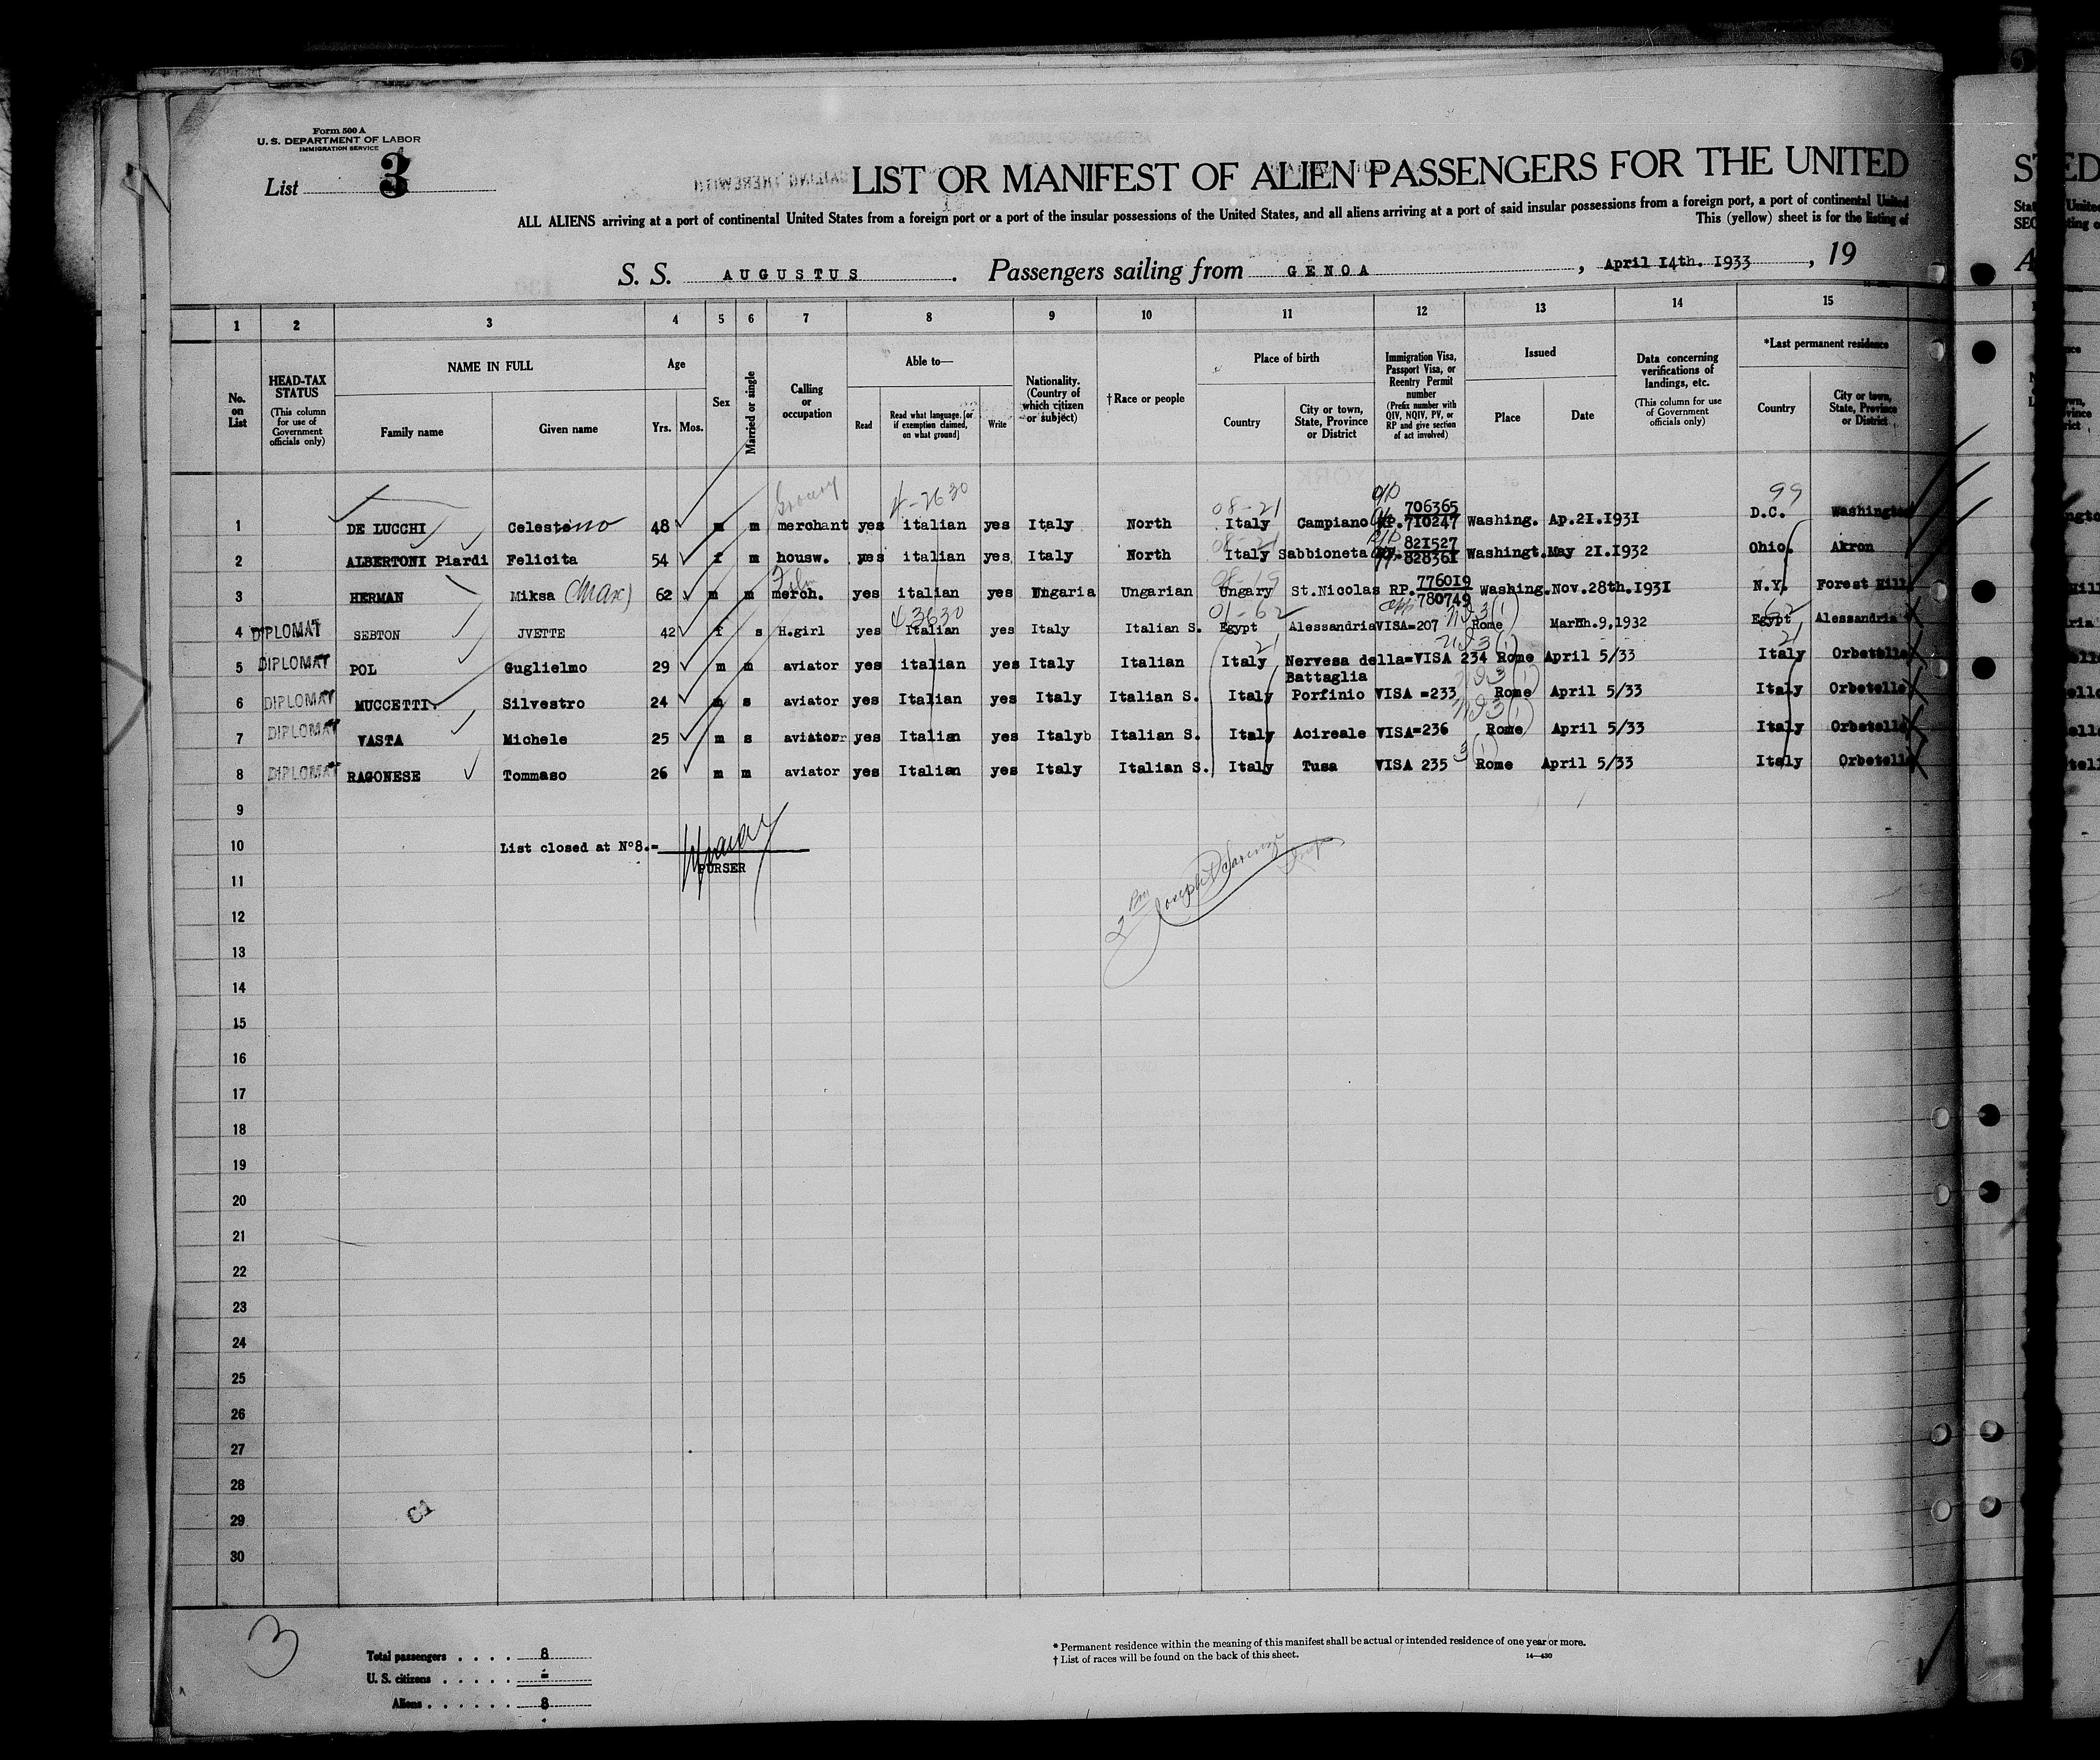 Form 500 A
U. S. DEPARTMENT OF LABOR
IMMIGRATION SERVICE
List 3
LIST OR MANIFEST OF ALIEN PASSENGERS FOR THE UNITED
ALL ALIENS arriving at a port of continental United States from a foreign port or a port of the insular possessions of the United States, and all aliens arriving at a port of said insular possessions from a foreign port, a port of continental United
This (yellow) sheet is for the listing of
S. S. AUGUSTUS. Passengers sailing from GENOA, April 14th. 1933, 19
1 2 3 4 5 6 7 8 9 10 11 12 13 14 15
No. on List
HEAD-TAX STATUS (This column for use of Government officials only)
NAME IN FULL
Family name
Given name
Age
Yrs. Mos.
Sex
Married or single
Calling or occupation
Able to—
Read
Read what language, [or if exemption claimed, on what ground]
Write
Nationality. (Country of which citizen or subject)
† Race or people
Place of birth
Country
City or town, State, Province or District
Immigration Visa, Passport Visa, or Reentry Permit number (Prefix number with QIV, NQIV, PV, or RP and give section of act involved)
Issued
Place
Date
Data concerning verifications of landings, etc. (This column for use of Government officials only)
*Last permanent residence
Country
City or town, State, Province or District
Grocery 4-2630 08-21 99
1 DE LUCCHI Celestino 48 m m merchant yes italian yes Italy North Italy Campiano RP. 706365 710247 Washing. Ap.21.1931 D.C. Washington
08-21
2 ALBERTONI Piardi Felicita 54 f m housw. yes italian yes Italy North Italy Sabbioneta 821527 828361 Washingt. May 21.1932 Ohio. Akron
08-19
3 HERMAN Miksa (Max) 62 m m merch. yes italian yes Ungaria Ungarian Ungary St.Nicolas RP. 776019 780749 Washing. Nov.28th.1931 N.Y. Forest Hill
43630 01-62 3(1) 62
4 DIPLOMAT SEBTON JVETTE 42 f s H.girl yes Italian yes Italy Italian S. Egypt Alessandria VISA=207 Rome March.9,1932 Egypt Alessandria
21 3(1) 21
5 DIPLOMAT POL Guglielmo 29 m m aviator yes italian yes Italy Italian Italy Nervesa della= Battaglia VISA 234 Rome April 5/33 Italy Orbetello
3(1)
6 DIPLOMAT MUCCETTI Silvestro 24 m s aviator yes Italian yes Italy Italian S. Italy Porfinio VISA =233 Rome April 5/33 Italy Orbetello
3(1)
7 DIPLOMAT VASTA Michele 25 m s aviatorr yes Italian yes Italyb Italian S. Italy Acireale VISA=236 Rome April 5/33 Italy Orbetello
3(1)
8 DIPLOMAT RAGONESE Tommaso 26 m m aviator yes Italian yes Italy Italian S. Italy Tusa VISA 235 Rome April 5/33 Italy Orbetello
9
10 List closed at N°8.=
PURSER
11
12
13
14
15
16
17
18
19
20
21
22
23
24
25
26
27
28
29
30
3
Total passengers . . . . 8
U. S. citizens . . . . . =
Aliens . . . . . . 8
* Permanent residence within the meaning of this manifest shall be actual or intended residence of one year or more.
† List of races will be found on the back of this sheet.
14—430